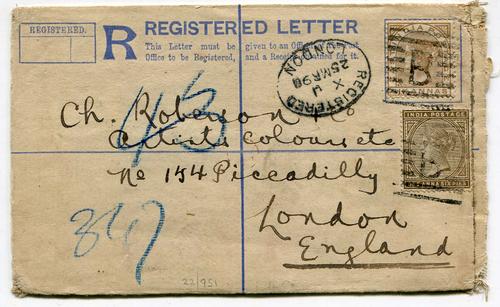 REGISTERED.
R
REGISTERED LETTER
This Letter must be given to an Officer of the Post
Office to be Registered, and a Receipt obtained for it.
REGISTERED
LONDON
25MR98
X
INDIA POSTAGE
Ch. Roberson & Co
Artists Colours etc
No 154 Piccadilly
London
England
347
22/951